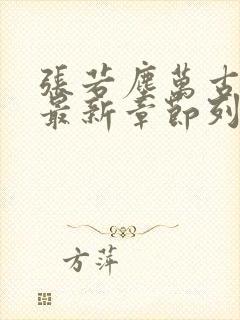 張若塵萬古
最新章節列
方萍